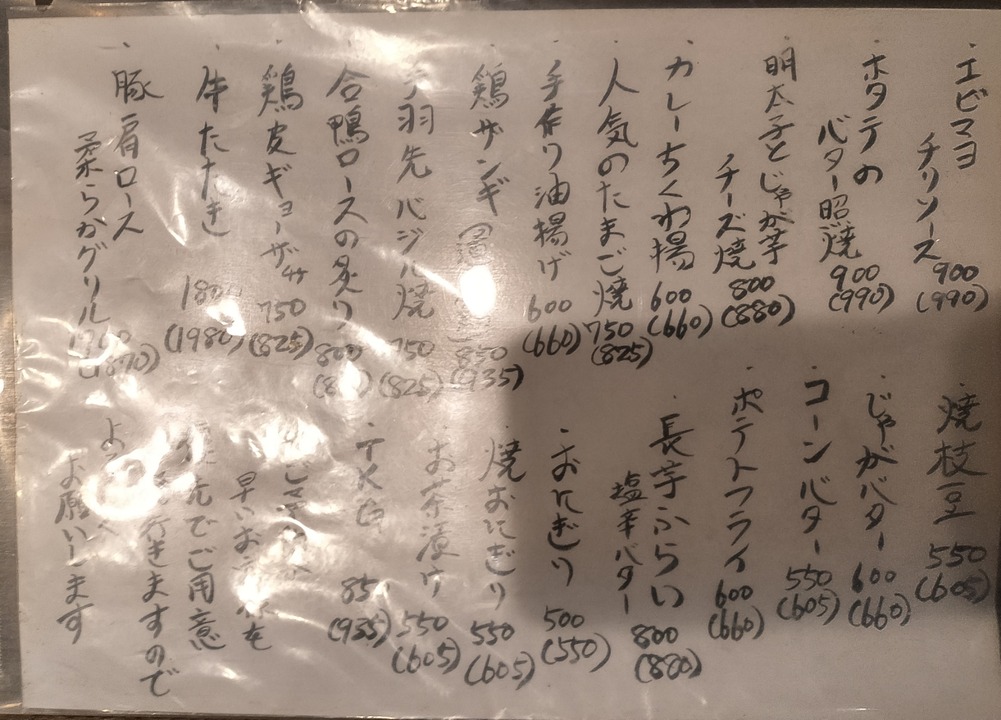 ・エビマヨ
チリソース
900
(990)
・ホタテの
バター照焼
900
(990)
・明太子とじゃが芋
チーズ焼
800
(880)
・カレーちくわ揚
600
(660)
・人気のたまご焼
750
(825)
・手作り油揚げ
600
(660)
・鶏ザンギ
850
(935)
手羽先バジル焼
750
(825)
・合鴨ロースの炙り
800
・鶏皮ギョーザ
750
(825)
・牛たたき
(1980)
・豚肩ロース
柔らかグリル
・焼枝豆
550
(605)
・じゃがバター
600
(660)
・コーンバター
550
(605)
・ポテトフライ
600
(660)
・長芋ふらい
塩辛バター
800
(880)
・おにぎり
500
(550)
焼おにぎり
550
(605)
お茶漬け
550
(605)
(935)
早い
でご用意
行きますので
お願いします